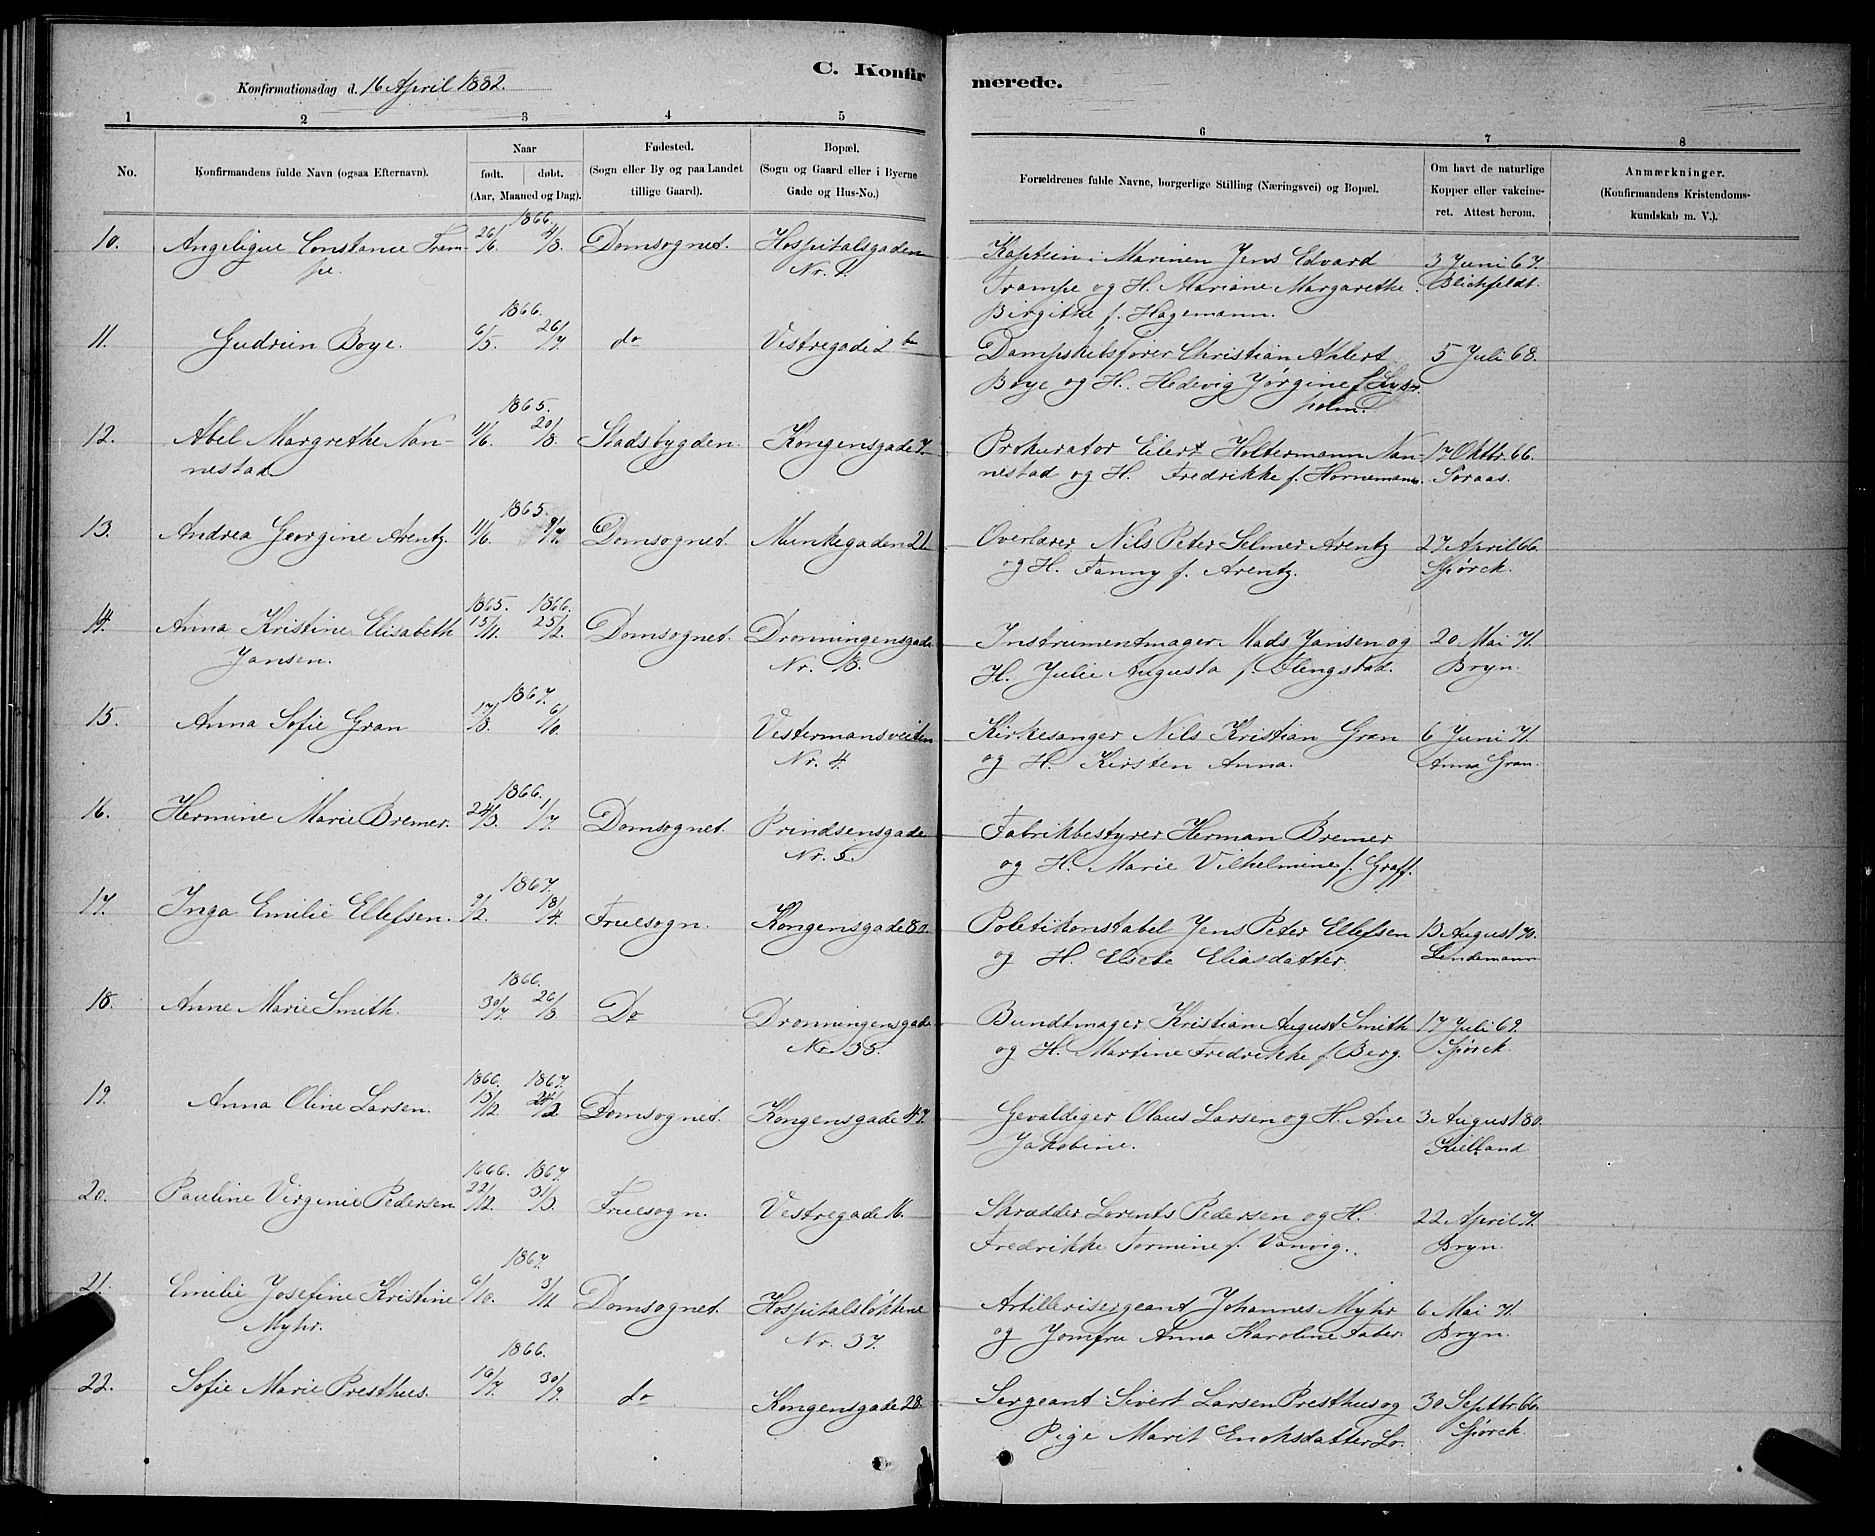 C. Konfirmerede.
Konfirmationsdag d. 16 April 1882.
1 2 3 4 5 6 7 8
No.
Konfirmandens fulde Navn (ogsaa Efternavn).
Naar
født. døbt.
(Aar, Maaned og Dag).
Fødested.
(Sogn eller By og paa Landet
tillige Gaard).
Bopæl.
(Sogn og Gaard eller i Byerne
Gade og Hus-No.)
Forældrenes fulde Navne, borgerlige Stilling (Næringsvei) og Bopæl.
Om havt de naturlige
Kopper eller vakcine-
ret. Attest herom.
Anmærkninger.
(Konfirmandens Kristendoms-
kundskab m. V.).
1866.
10. Angelique Constance Tram- 26/6. 4/8. Domsognet. Hospitalsgaden Kaptein i Marinen Jens Edvard 3 Juni 67.
pe. Nr. 1. Trampe og H. Mariane Margarethe Blichfeldt.
Birgithe f. Hagemann.
1866.
11. Gudrun Boye. 6/5. 26/7. do Vestregade 2 b Dampskibsfører Christian Ahlert 5 Juli 68.
Boye og H. Hedevig Jørgine f.
holm.
1865.
12. Abel Margrethe Nan- 11/6. 20/8. Stadsbygden. Kongensgade 7 Prokurator Eilert Holtermann Nan- 17 Oktbr 66.
nestad nestad og H. Fredrikke f. Hornemann. Soraas.
1865.
13. Andrea Georgine Arentz. 11/6. 9/7. Domsognet. Munkegaden 21 Overlærer Nils Peter Selmer Arentz 27 April 66.
og H. Fanny f. Arentz. Spørck.
1865. 1866.
14. Anna Kristine Elisabeth 15/11. 25/2. Domsognet. Dronningensgade Instrumentmager Mads Jansen og 20 Mai 71.
Jansen. Nr. 13. H. Julie Augusta f. Flengstad. Bryn.
1867.
15. Anna Sofie Gran 17/8. 6/10. Vestermansveiten Kirkesanger Nils Kristian Gran 6 Juni 71.
Nr. 4. og H. Kirsten Anna. Anna Gran.
1866.
16. Hermine Marie Bremer. 24/3. 1/7. Domsognet. Prindsensgade Fabrikbestyrer Herman Bremer
Nr. 5. og H. Marie Vilhelmine f. Graff.
1867.
17. Inga Emilie Ellefsen. 9/2. 18/4. Fruesogn. Kongensgade 80. Poletikonstabel Jens Peter Ellefsen 13 August 70.
og H. Elsebe Eliasdatter. Lindemann
1866.
18. Anne Marie Smith. 30/7. 26/8. Do Dronningensgade Bundtmager Kristian August Smith 17 Juli 69.
Nr. 35. og H. Martine Fredrikke f. Berg. Spørck.
1866. 1867.
19. Anna Oline Larsen. 13/12. 24/2 Domsognet. Kongensgade 47. Gevaldiger Olaus Larsen og H. Ane 3 August 80.
Jakobine. Kielland
1666. 1867.
20. Pauline Virginie Pedersen 22/12. 31/3. Fruesogn. Vestregade 16. Skrædder Lorents Pedersen og H. 22 April 71.
Fredrikke Tormine f. Vanvig. Bryn.
1867.
21. Emilie Josefine Kristine 6/10. 3/11. Domsognet. Hospitalsløkkene Artillerisergeant Johannes Myhr 6 Mai 71.
Myhr. Nr. 37. og Jomfru Anna Karoline Faber. Bryn.
1866.
22. Sofie Marie Presthus. 16/7. 30/9. do Kongensgade 28. Sergeant Sivert Larsen Presthus og 30 Septbr 66.
Pige Marit Enoksdatter Lo. Spørck.